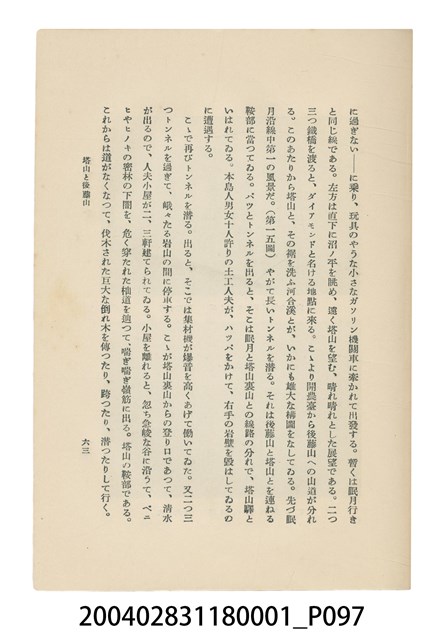 に過ぎない――に乗り、玩具のやうな小さなガソリン機關車に牽かれて出發する。暫くは眠月行き
と同じ線である。左方は直下に沼ノ平を眺め、遠く塔山を望む、晴れ晴れとした展望である。二つ
三つ鐵橋を渡ると、ダイアモンドと名ける地點に來る。こゝより開農臺から後藤山への山道が分れ
る。このあたりから塔山と、その裾を洗ふ河合溪とが、いかにも雄大な構圖をなしてゐる。先づ眠
月沿線中第一の風景だ。（第一五圖） やがて長いトンネルを潛る。それは後藤山と塔山とを連ねる
鞍部に當つてゐる。パツとトンネルを出ると、そこは眠月と塔山裏山との線路の分れで、塔山驛と
いはれてゐる。本島人男女十人許りの土工人夫が、ハツパをかけて、右手の岩壁を毀はしてゐるの
に遭遇する。
こゝで再びトンネルを潛る。出ると、そこでは集材機が爆音を高くあげて働いてゐた。又二つ三
つトンネルを過ぎて、峨々たる岩山の間に停車する。こゝが塔山裏山からの登り口であつて、淸水
が出るので、人夫小屋が二、三軒建てられてゐる。小屋を離れると、忽ち急峻な谷に沿うて、ベニ
ヒやヒノキの密林の下闇を、危く穿たれた杣道を廻つて、喘ぎ喘ぎ嶺筋に出る。塔山の鞍部である。
これからは道がなくなつて、伐木された巨大な倒れ木を傳つたり、跨つたり、潛つたりして行く。
塔山と後藤山
六三
200402831180001_P097